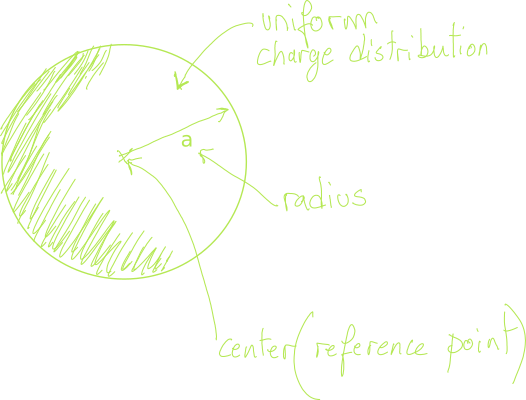 uniform
charge distribution
a
radius
center (reference point)